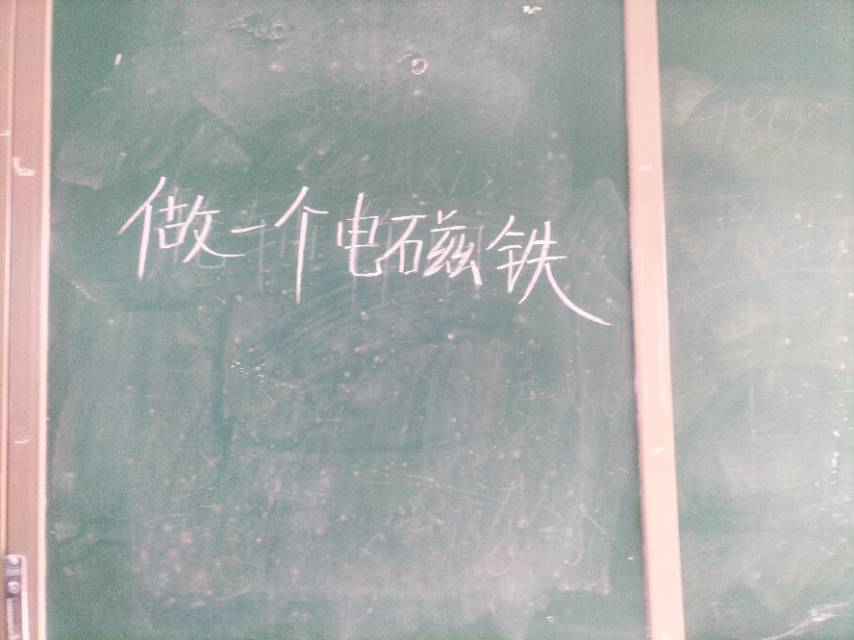 做一个电磁铁